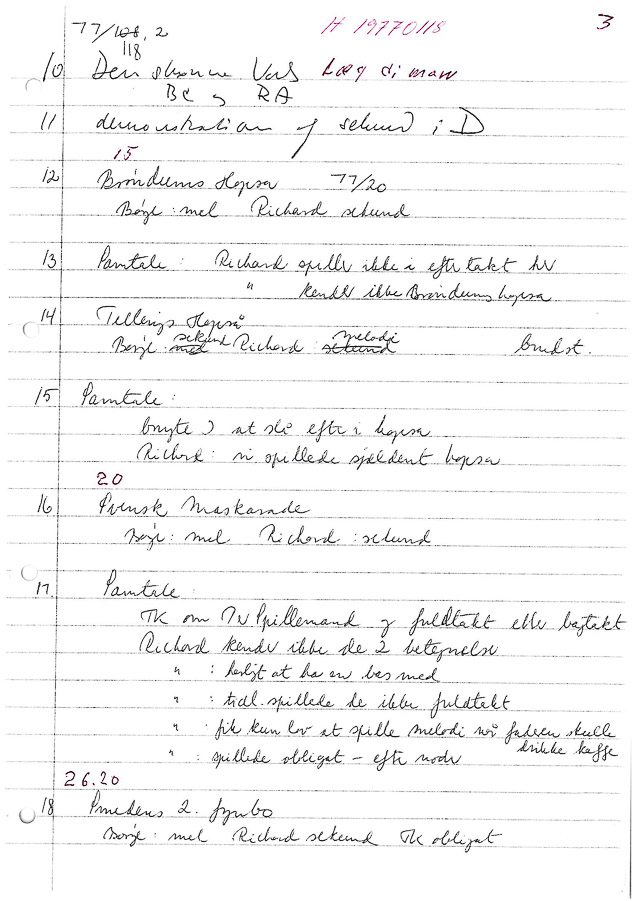 77/128, 2 H 19770118 3
118
10 Den skønne Vals Læg di
BC og RA
11 demonstration af sekund i D
15
12 Brøndums Hopsa 77/20
Børge : mel Richard sekund
13 Samtale : Richard spiller ikke i eftertakt her
" kender ikke Brøndums hopsa
14 Tellerups Hopsa
Børge : med sekund Richard : sekund melodi
15 Samtale :
at slå efter i hopsa
Richard : vi spillede sjældent hopsa
20
16 Svensk Maskarade
Børge : mel Richard : sekund
17. Samtale :
TK om Spillemand og fuldtakt eller bagtakt
Richard kender ikke de 2 betegnelse
" : herligt at ha en bas med
" : tidl. spillede de ikke fuldtakt
" : fik kun lov at spille melodi når faderen skulle
drikke kaffe
" : spillede obligat – efter noder
26.20
18 Smedens 2. fynbo
Børge : mel Richard sekund TK obligat